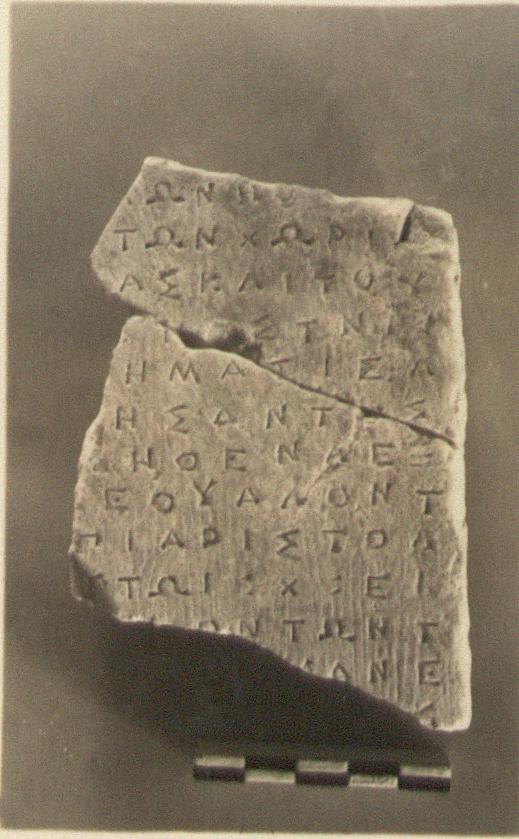 ΩΝ
ΤΩΝΧΩΡΙ
ΑΣΚΑΙΤΟΥ
ΣΤΝΙΥ
ΗΜΑΤΙΕΛ
ΗΣΑΝΤΕΣ
ΗΘΕΝΔΕΞ
ΕΟΥΑΛΟΝΤ
ΠΙΑΡΙΣΤΟΔ
ΤΩΙ:Χ:ΕΙ
ΩΝΤΩΝΤ
ΑΝΕ